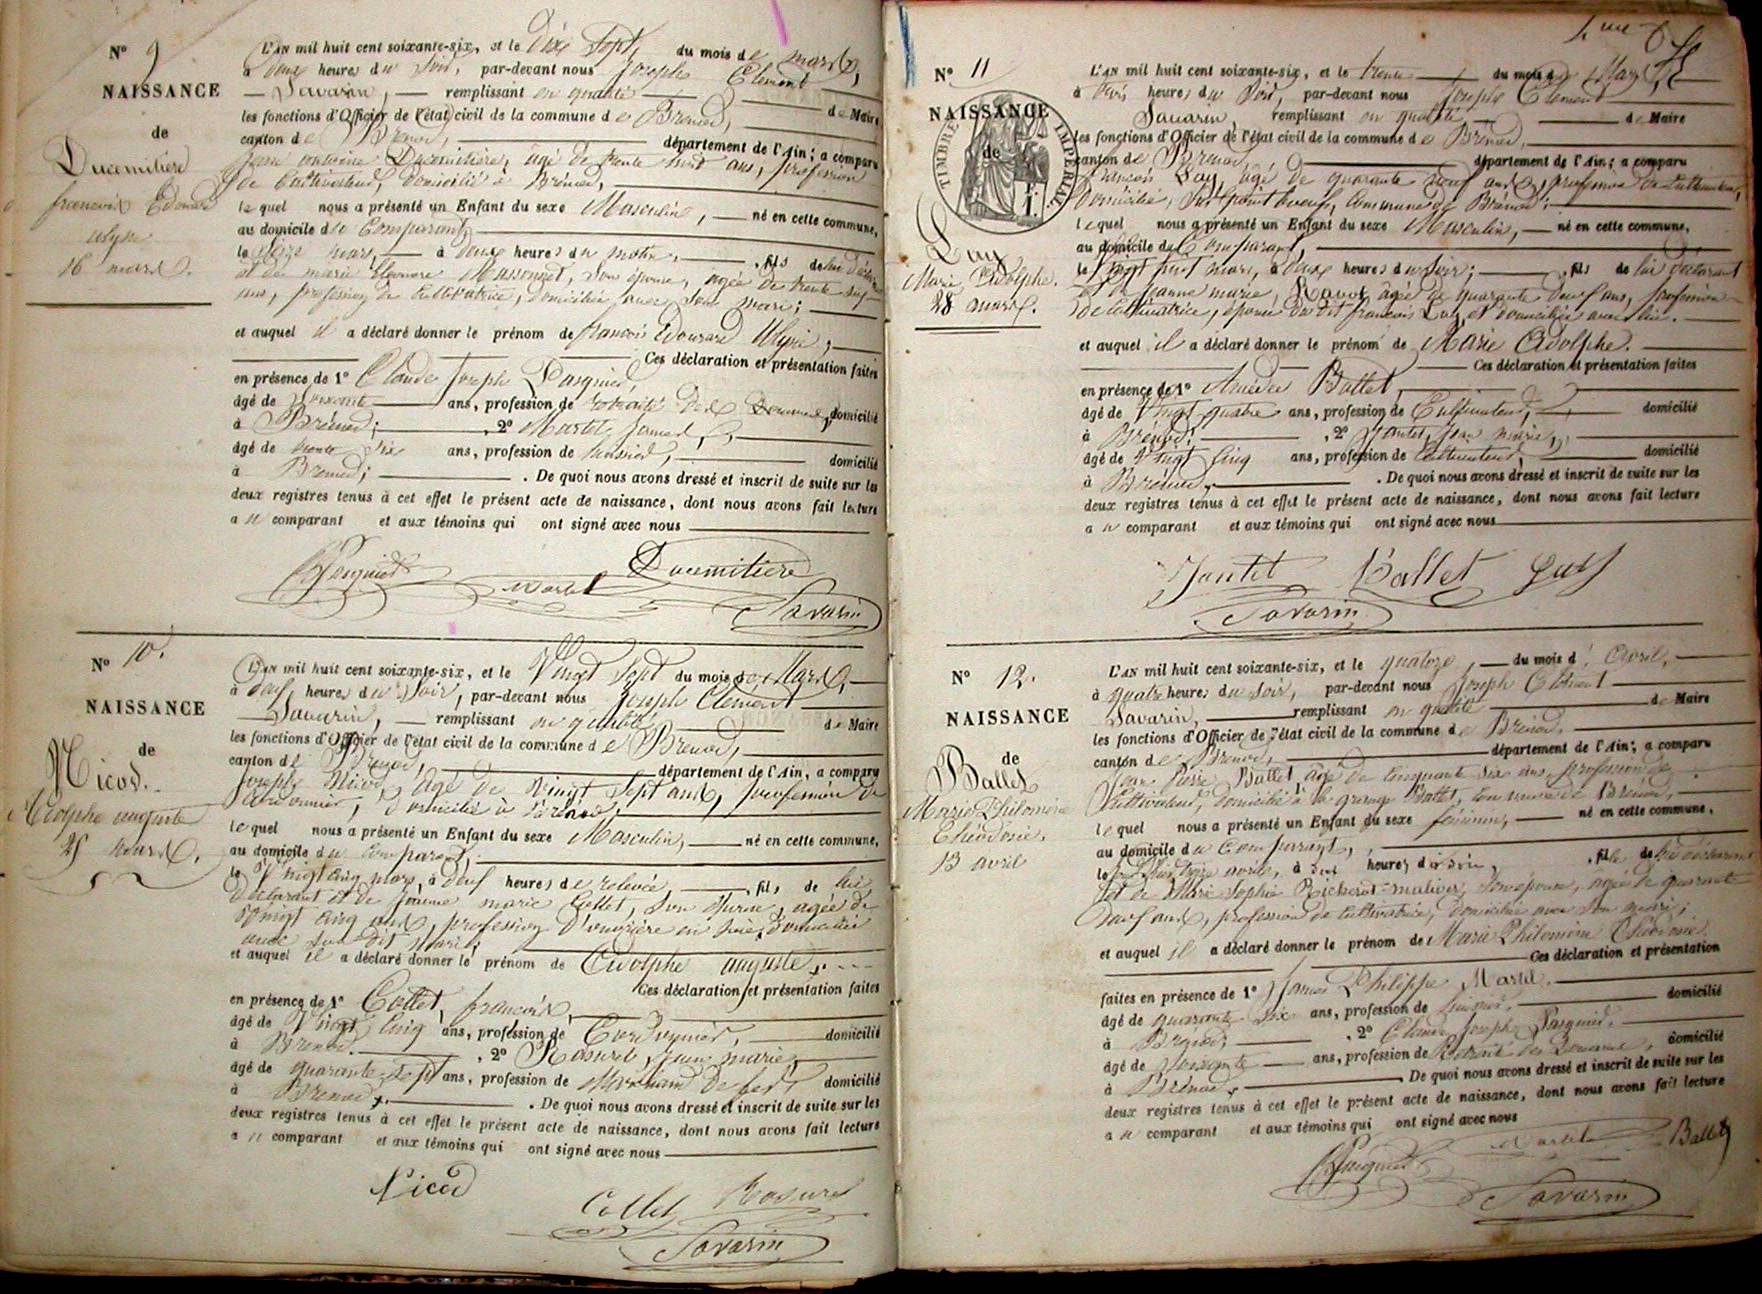 N° 9
NAISSANCE
de
Ducemitière
françois Edouard
ulysse
16 mars.
L'AN mil huit cent soixante-six, et le dix sept du mois de mars,
à deux heures du soir, par-devant nous Joseph Clément
Savarin, remplissant en qualité
de Maire
les fonctions d'Officier de l'état civil de la commune de Brénod,
canton de Brénod, département de l'Ain; a comparu
Ducemitière, âgé de trente huit ans, profession
de Cultivateur, domicilié à Brénod,
lequel nous a présenté un Enfant du sexe Masculin, né en cette commune,
au domicile du Comparant,
le seize mars, à deux heures du matin, fils de lui déclarant
et de marie Eléonore Massonnet, son épouse, agée de trente
ans, profession de Cultivatrice, domiciliée avec son mari;
et auquel il a déclaré donner le prénom de françois Edouard Ulysse;
Ces déclaration et présentation faites
en présence de 1° Claude Joseph Pasquied,
âgé de soixante ans, profession de retraité des Douanes, domicilié
à Brénod; 2° Martel
âgé de trente six ans, profession de domicilié
à Brénod; . De quoi nous avons dressé et inscrit de suite sur les
deux registres tenus à cet effet le présent acte de naissance, dont nous avons fait lecture
au comparant et aux témoins qui ont signé avec nous
Ducemitiere
Martel
Savarin
N° 10.
NAISSANCE
de
Nicod.
Adolphe auguste
25 mars.
L'AN mil huit cent soixante-six, et le Vingt Sept du mois de Mars,
à neuf heures du Soir, par-devant nous Joseph Clément
Savarin, remplissant en qualité
de Maire
les fonctions d'Officier de l'état civil de la commune de Brénod,
canton de Brénod, département de l'Ain, a comparu
Joseph Nicod, âgé de Vingt Sept ans, profession de
Cordonnier, domicilié à Brénod,
lequel nous a présenté un Enfant du sexe Masculin, né en cette commune,
au domicile du comparant,
le Vingt cinq mars, à neuf heures de relevée, fils de lui
Déclarant et de Jeanne marie Collet, son épouse, agée de
Vingt cinq ans, profession d'ouvrière en soie, domiciliée
avec son dit mari;
et auquel il a déclaré donner le prénom de Adolphe auguste,
Ces déclaration et présentation faites
en présence de 1° Collet, françois,
âgé de Vingt Cinq ans, profession de Cordonnier, domicilié
à Brénod. 2° Rosurel, Jean marie,
âgé de quarante Sept ans, profession de Marchand de fer, domicilié
à Brénod, . De quoi nous avons dressé et inscrit de suite sur les
deux registres tenus à cet effet le présent acte de naissance, dont nous avons fait lecture
au comparant et aux témoins qui ont signé avec nous
Nicod
Collet
Savarin
N° 11
NAISSANCE
de
TIMBRE IMPÉRIAL
Guy
Marie Adolphe.
28 mars.
L'AN mil huit cent soixante-six, et le trente du mois de Mars
à trois heures du Soir, par-devant nous Joseph Clément
Savarin, remplissant en qualité, de Maire
les fonctions d'Officier de l'état civil de la commune de Brénod,
canton de Brénod, département de l'Ain; a comparu
françois Guy, âgé de quarante neuf ans, profession de Cultivateur,
domicilié, Commune de Brénod;
lequel nous a présenté un Enfant du sexe Masculin, né en cette commune,
au domicile du Comparant,
le Vingt huit mars, à deux heures du Soir; fils de lui déclarant
et de Jeanne marie, âgée de quarante deux ans, profession
de Cultivatrice, épouse du dit françois Guy, et domiciliée avec lui.
et auquel il a déclaré donner le prénom de Marie Adolphe.
Ces déclaration et présentation faites
en présence de 1° Amédée Ballet,
âgé de Vingt quatre ans, profession de Cultivateur, domicilié
à Brénod; 2° Jantet, Jean marie,
âgé de Vingt Cinq ans, profession de Cultivateur, domicilié
à Brénod, . De quoi nous avons dressé et inscrit de suite sur les
deux registres tenus à cet effet le présent acte de naissance, dont nous avons fait lecture
au comparant et aux témoins qui ont signé avec nous
Jantet Ballet Guy
Savarin
N° 12.
NAISSANCE
de
Ballet
Marie Philomène
Théodosie.
13 avril
L'AN mil huit cent soixante-six, et le quatorze, du mois d'Avril,
à quatre heures du Soir, par-devant nous Joseph Clément
Savarin, remplissant en qualité de Maire
les fonctions d'Officier de l'état civil de la commune de Brénod,
canton de Brénod, département de l'Ain; a comparu
Jean Pierre Ballet, âgé de Cinquante six ans, profession de
Cultivateur, domicilié à la grange Ballet, Commune de Brénod,
lequel nous a présenté un Enfant du sexe féminin, né en cette commune,
au domicile du Comparant,
le treize avril, à heures du soir, fille de lui déclarant
et de Marie Sophie son épouse, agée de quarante
neuf ans, profession de Cultivatrice, domiciliée avec son mari;
et auquel il a déclaré donner le prénom de Marie Philomène Théodosie.
Ces déclaration et présentation
faites en présence de 1° James Philippe Martel,
âgé de quarante six ans, profession de domicilié
à Brénod; 2° Claude Joseph Pasquied,
âgé de soixante ans, profession de Retraité des Douanes, domicilié
à Brénod, . De quoi nous avons dressé et inscrit de suite sur les
deux registres tenus à cet effet le présent acte de naissance, dont nous avons fait lecture
au comparant et aux témoins qui ont signé avec nous
Martel Ballet
Savarin